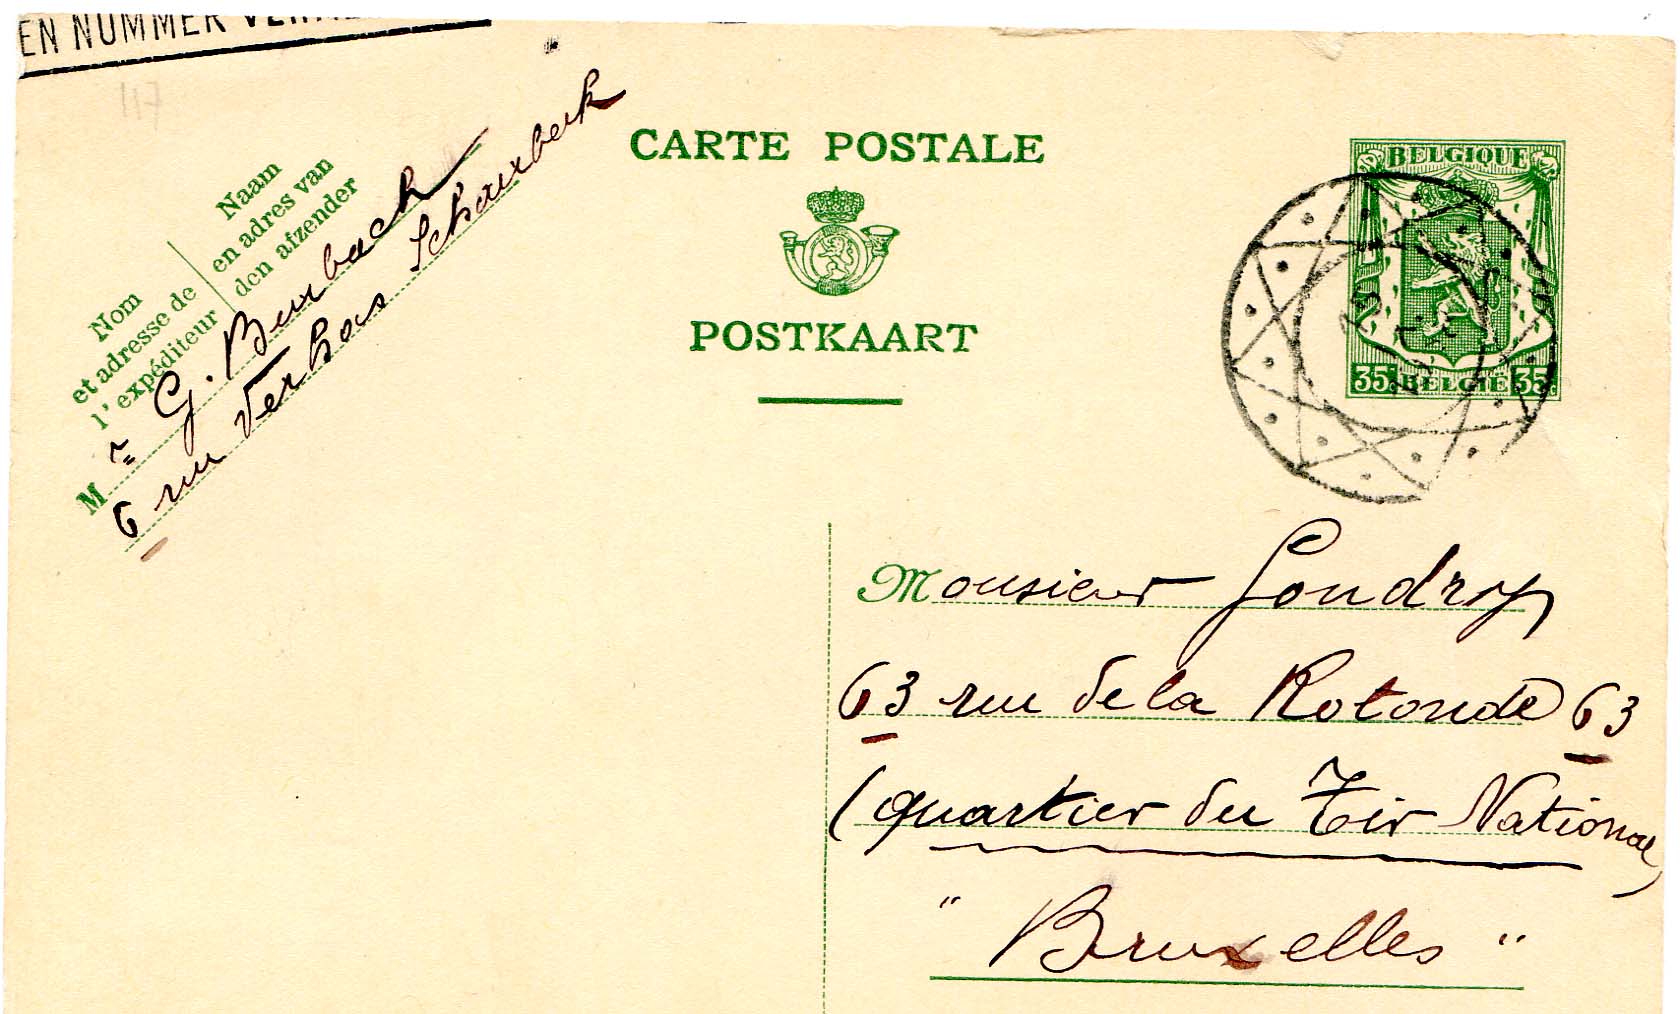 EN NUMMER VERME
117
CARTE POSTALE
POSTKAART
BELGIQUE
35c BELGIË 35c
Naam
en adres van
den afzender
Nom
et adresse de
l'expéditeur
Mr G. Burbach
6 rue Verhas Scharbeek
Monsieur Gondry
63 rue de la Rotonde 63
(quartier du Tir National)
" Bruxelles "